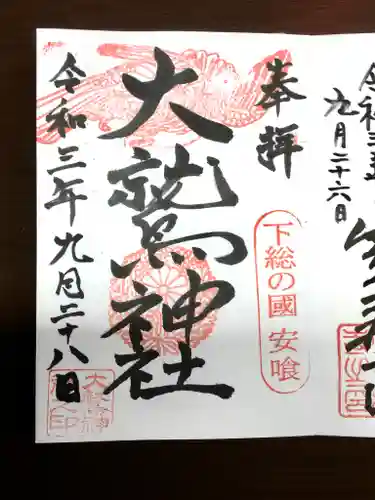 奉拝
下総の國 安喰
大鷲神社
令和三年九月二十八日
九月二十六日